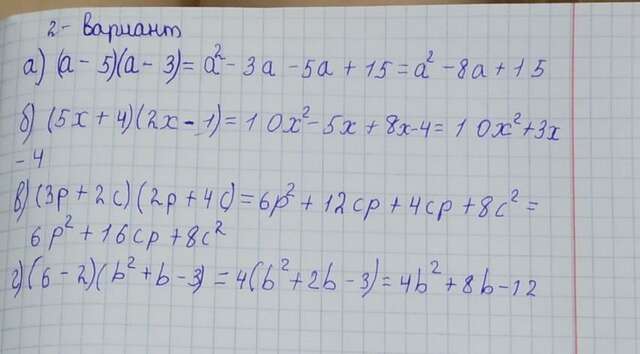 2 - вариант
а) (a - 5)(a - 3) = a² - 3a - 5a + 15 = a² - 8a + 15
б) (5x + 4)(2x - 1) = 10x² - 5x + 8x - 4 = 10x² + 3x
- 4
в) (3p + 2c)(2p + 4c) = 6p² + 12cp + 4cp + 8c² =
6p² + 16cp + 8c²
г) (6 - 2)(b² + b - 3) = 4(b² + 2b - 3) = 4b² + 8b - 12